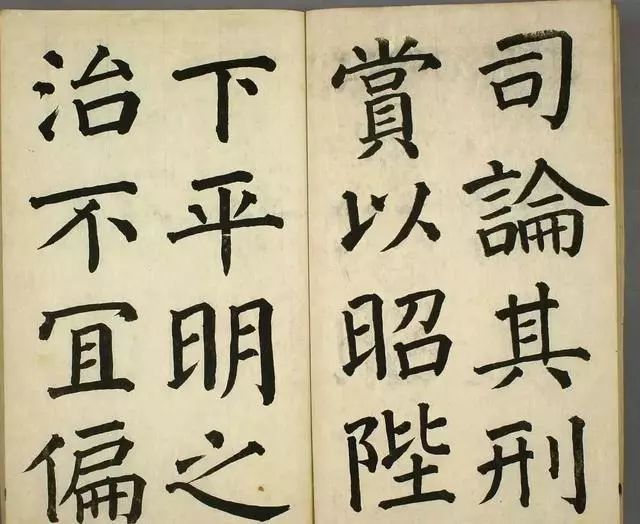 司論其刑
賞以昭陛
下平明之
治不冝偏